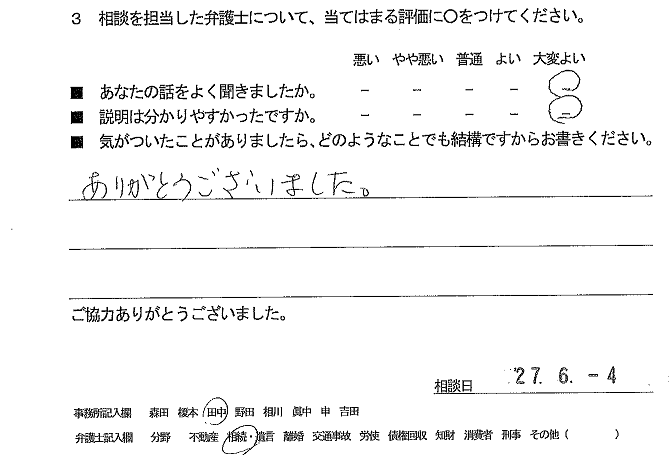 3 相談を担当した弁護士について、当てはまる評価に〇をつけてください。
悪い やや悪い 普通 よい 大変よい
■ あなたの話をよく聞きましたか。 － － － － －
■ 説明は分かりやすかったですか。 － － － － －
■ 気がついたことがありましたら、どのようなことでも結構ですからお書きください。
ありがとうございました。
ご協力ありがとうございました。
相談日 '27. 6. -4
事務所記入欄 森田 榎本 田中 野田 相川 眞中 申 吉田
弁護士記入欄 分野 不動産 相続・遺言 離婚 交通事故 労使 債権回収 知財 消費者 刑事 その他（ ）